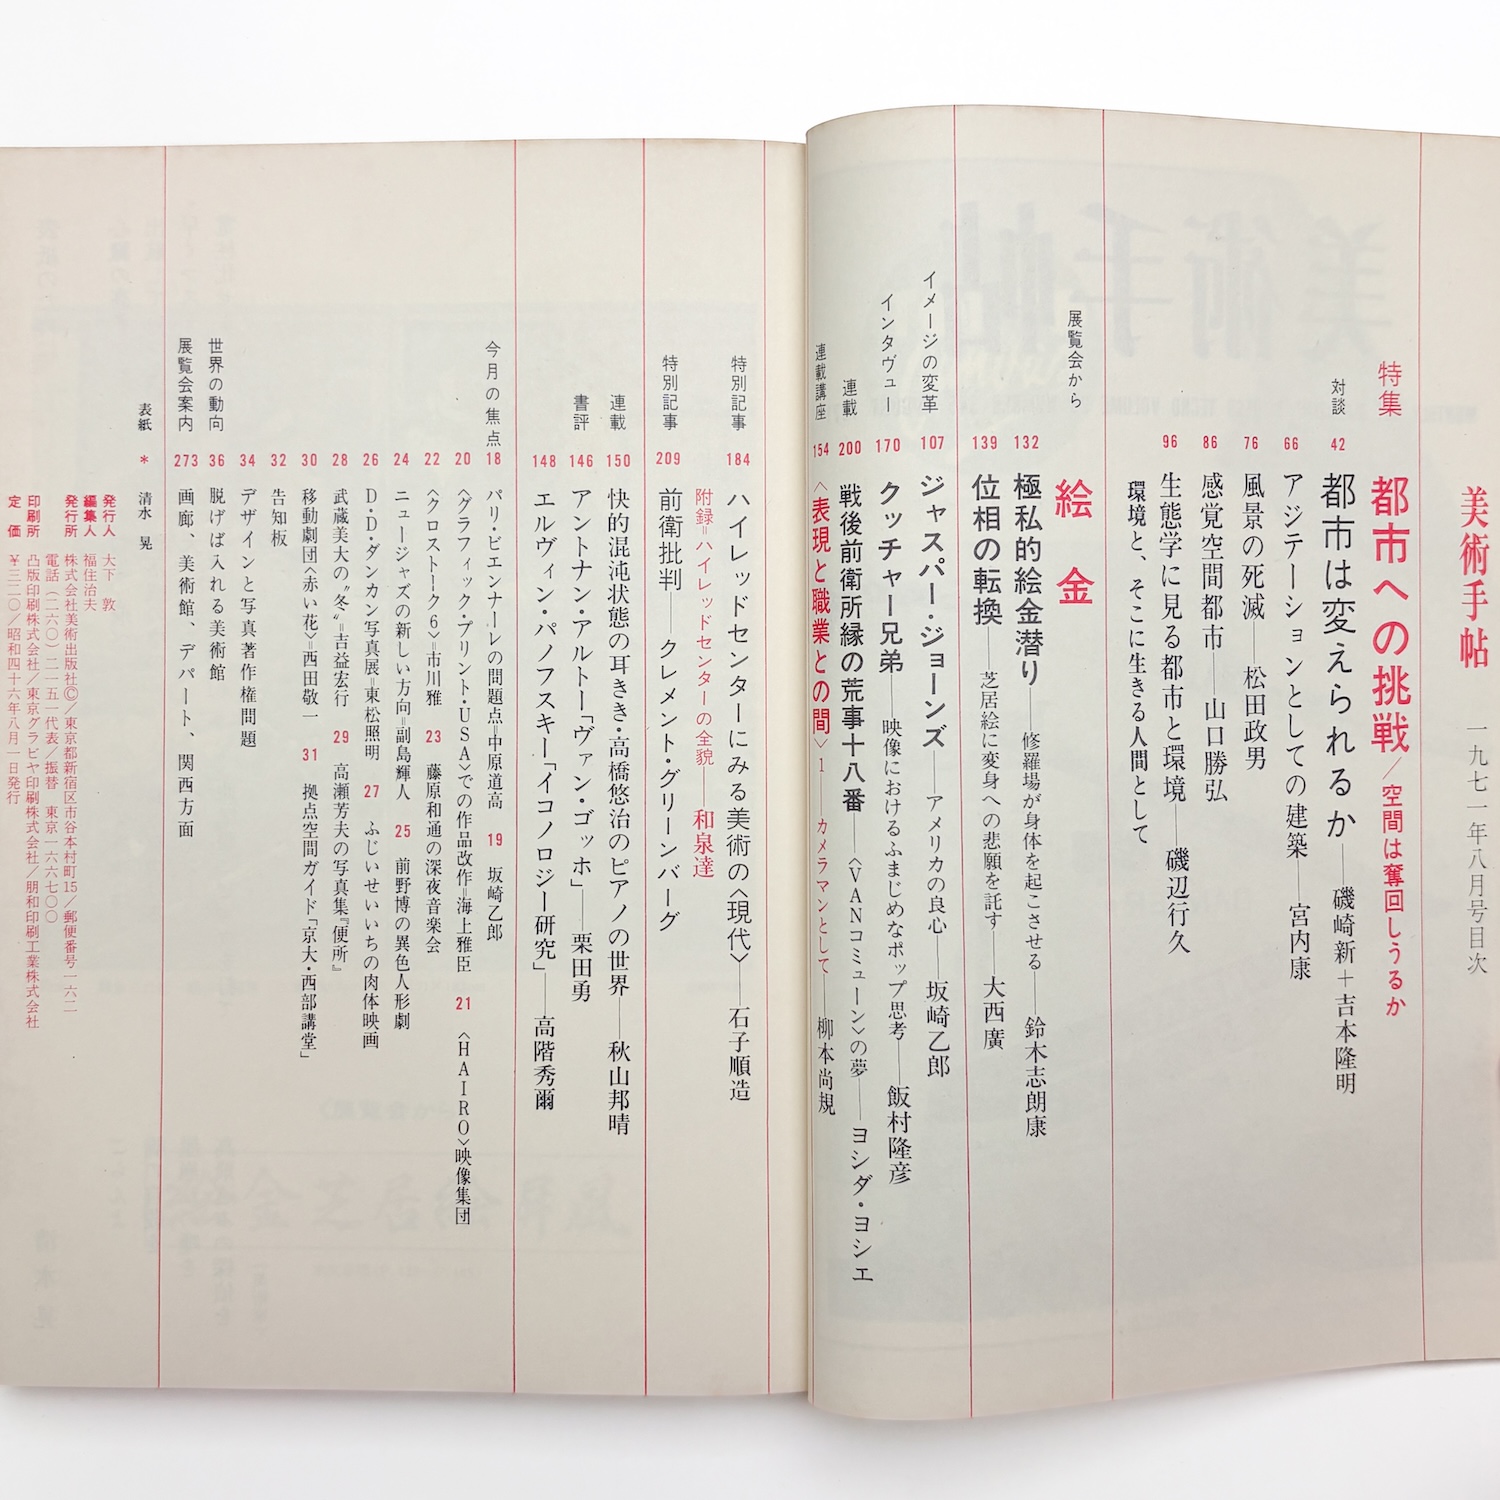 美術手帖 一九七一年八月号目次
特集 都市への挑戦／空間は奪回しうるか
対談 42 都市は変えられるか──磯崎新＋吉本隆明
66 アジテーションとしての建築──宮内康
76 風景の死滅──松田政男
86 感覚空間都市──山口勝弘
96 生態学に見る都市と環境──磯辺行久
環境と、そこに生きる人間として
展覧会から 絵金
132 極私的絵金潜り──修羅場が身体を起こさせる──鈴木志朗康
139 位相の転換──芝居絵に変身への悲願を託す──大西廣
イメージの変革 107 ジャスパー・ジョーンズ──アメリカの良心──坂崎乙郎
インタヴュー 170 クッチャー兄弟──映像におけるふまじめなポップ思考──飯村隆彦
連載 200 戦後前衛所縁の荒事十八番──〈VANコミューン〉の夢──ヨシダ・ヨシエ
連載講座 154 〈表現と職業との間〉1 カメラマンとして──柳本尚規
特別記事 184 ハイレッドセンターにみる美術の〈現代〉──石子順造
附録＝ハイレッドセンターの全貌──和泉達
特別記事 209 前衛批判──クレメント・グリーンバーグ
連載 150 快的混沌状態の耳きき・高橋悠治のピアノの世界──秋山邦晴
書評 146 アントナン・アルトー「ヴァン・ゴッホ」──栗田勇
148 エルヴィン・パノフスキー「イコノロジー研究」──高階秀爾
今月の焦点 18 パリ・ビエンナーレの問題点＝中原道高 19 坂崎乙郎
20 〈グラフィック・プリント・USA〉での作品改作＝海上雅臣 21 〈HAIRO〉映像集団
22 〈クロストーク6〉＝市川雅 23 藤原和通の深夜音楽会
24 ニュージャズの新しい方向＝副島輝人 25 前野博の異色人形劇
26 D・D・ダンカン写真展＝東松照明 27 ふじいせいいちの肉体映画
28 武蔵美大の〝冬〟＝吉益宏行 29 高瀬芳夫の写真集『便所』
30 移動劇団〈赤い花〉＝西田敬一 31 拠点空間ガイド「京大・西部講堂」
32 告知板
34 デザインと写真著作権問題
世界の動向 36 脱げば入れる美術館
展覧会案内 273 画廊、美術館、デパート、関西方面
表紙 ＊ 清水 晃
発行人 大下 敦
編集人 福住治夫
発行所 株式会社美術出版社Ⓒ／東京都新宿区市谷本村町15／郵便番号一六二
電話（二六〇）二一五一代表／振替 東京一六六七〇〇
印刷所 凸版印刷株式会社／東京グラビヤ印刷株式会社／朋和印刷工業株式会社
定 価 ￥三二〇／昭和四十六年八月一日発行